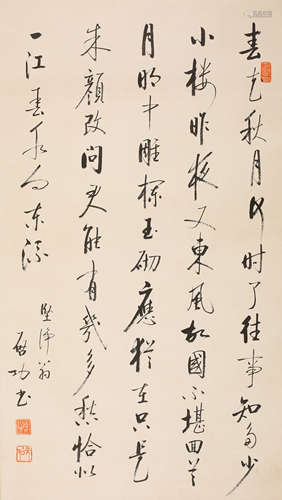 春花秋月何時了往事知多少
小樓昨夜又東風故國不堪回首
月明中雕欄玉砌應猶在只是
朱顏改問君能有幾多愁恰似
一江春水向東流
堅淨翁
啟功書